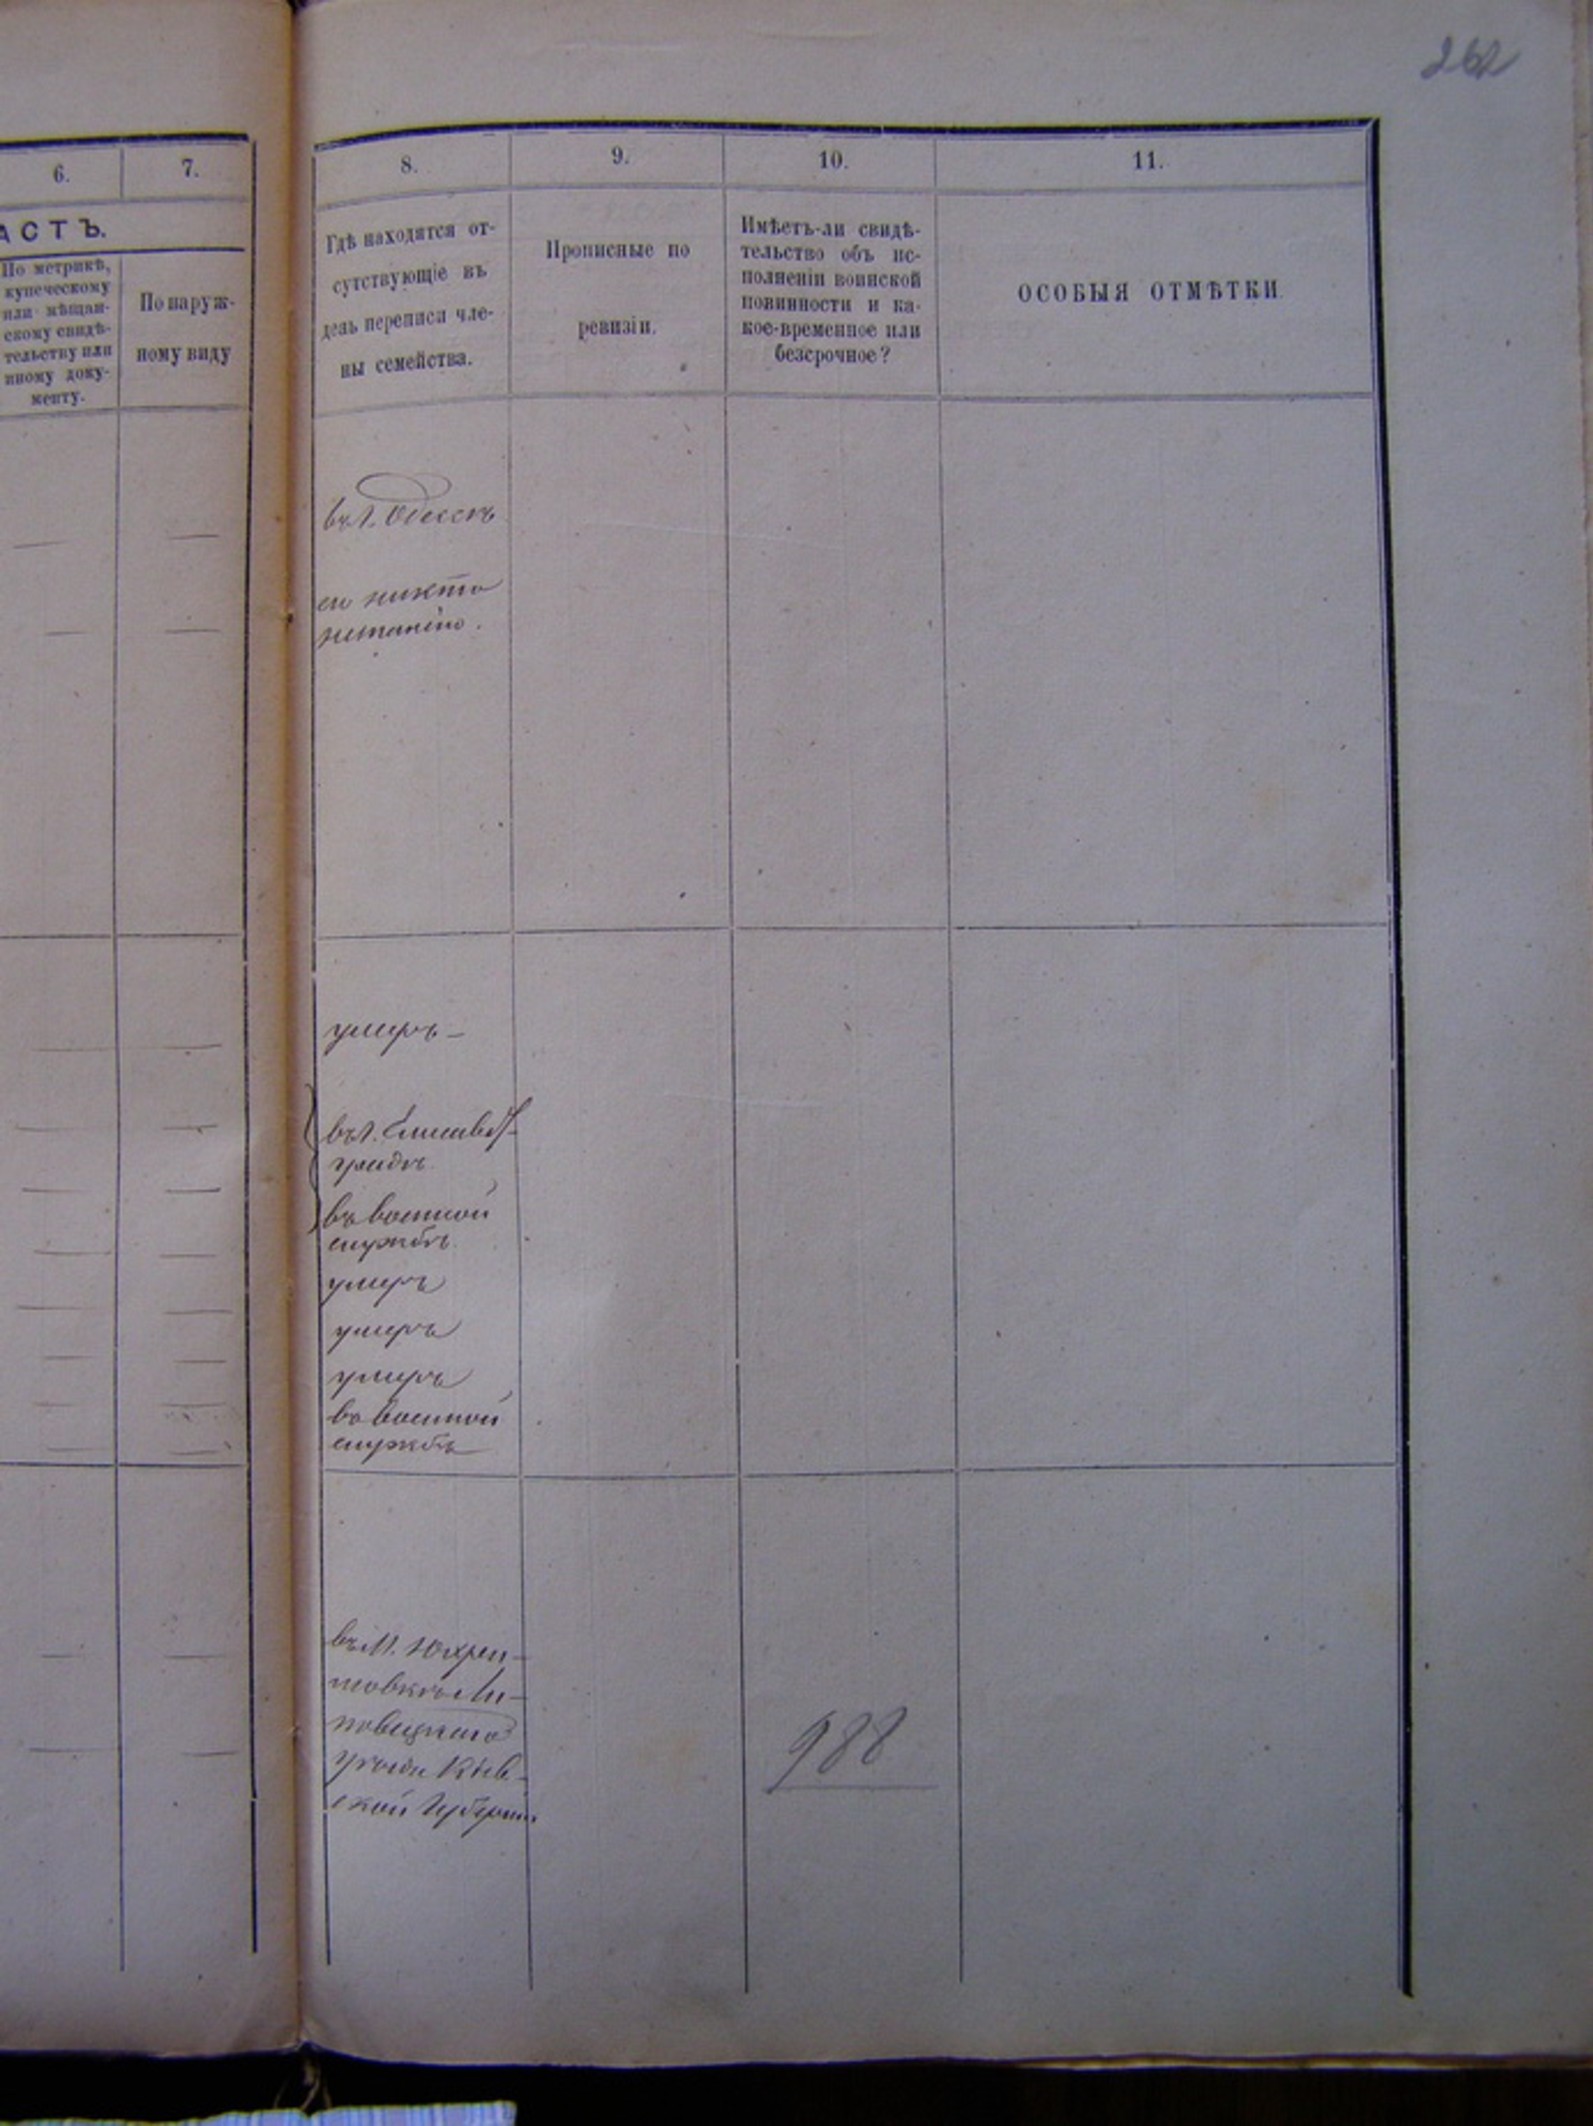 262
6.
7.
АСТЪ.
По метрикѣ,
купеческому
или мѣщан-
скому свидѣ-
тельству или
иному доку-
менту.
По наруж-
ному виду
8.
9.
10.
11.
Гдѣ находятся от-
сутствующіе въ
день переписи чле-
ны семейства.
Прописные по
ревизіи.
Имѣетъ-ли свидѣ-
тельство объ ис-
полненіи воинской
повинности и ка-
кое-временное или
безсрочное?
ОСОБЫЯ ОТМѢТКИ.
въ г. Одессѣ
никто
умеръ –
въ г. Елисавет-
градѣ
въ военной
службѣ
умеръ
умеръ
умеръ
въ военной
службѣ
въ м.
Ли-
повецкаго
уѣзда Кіев-
ской Губерніи
988